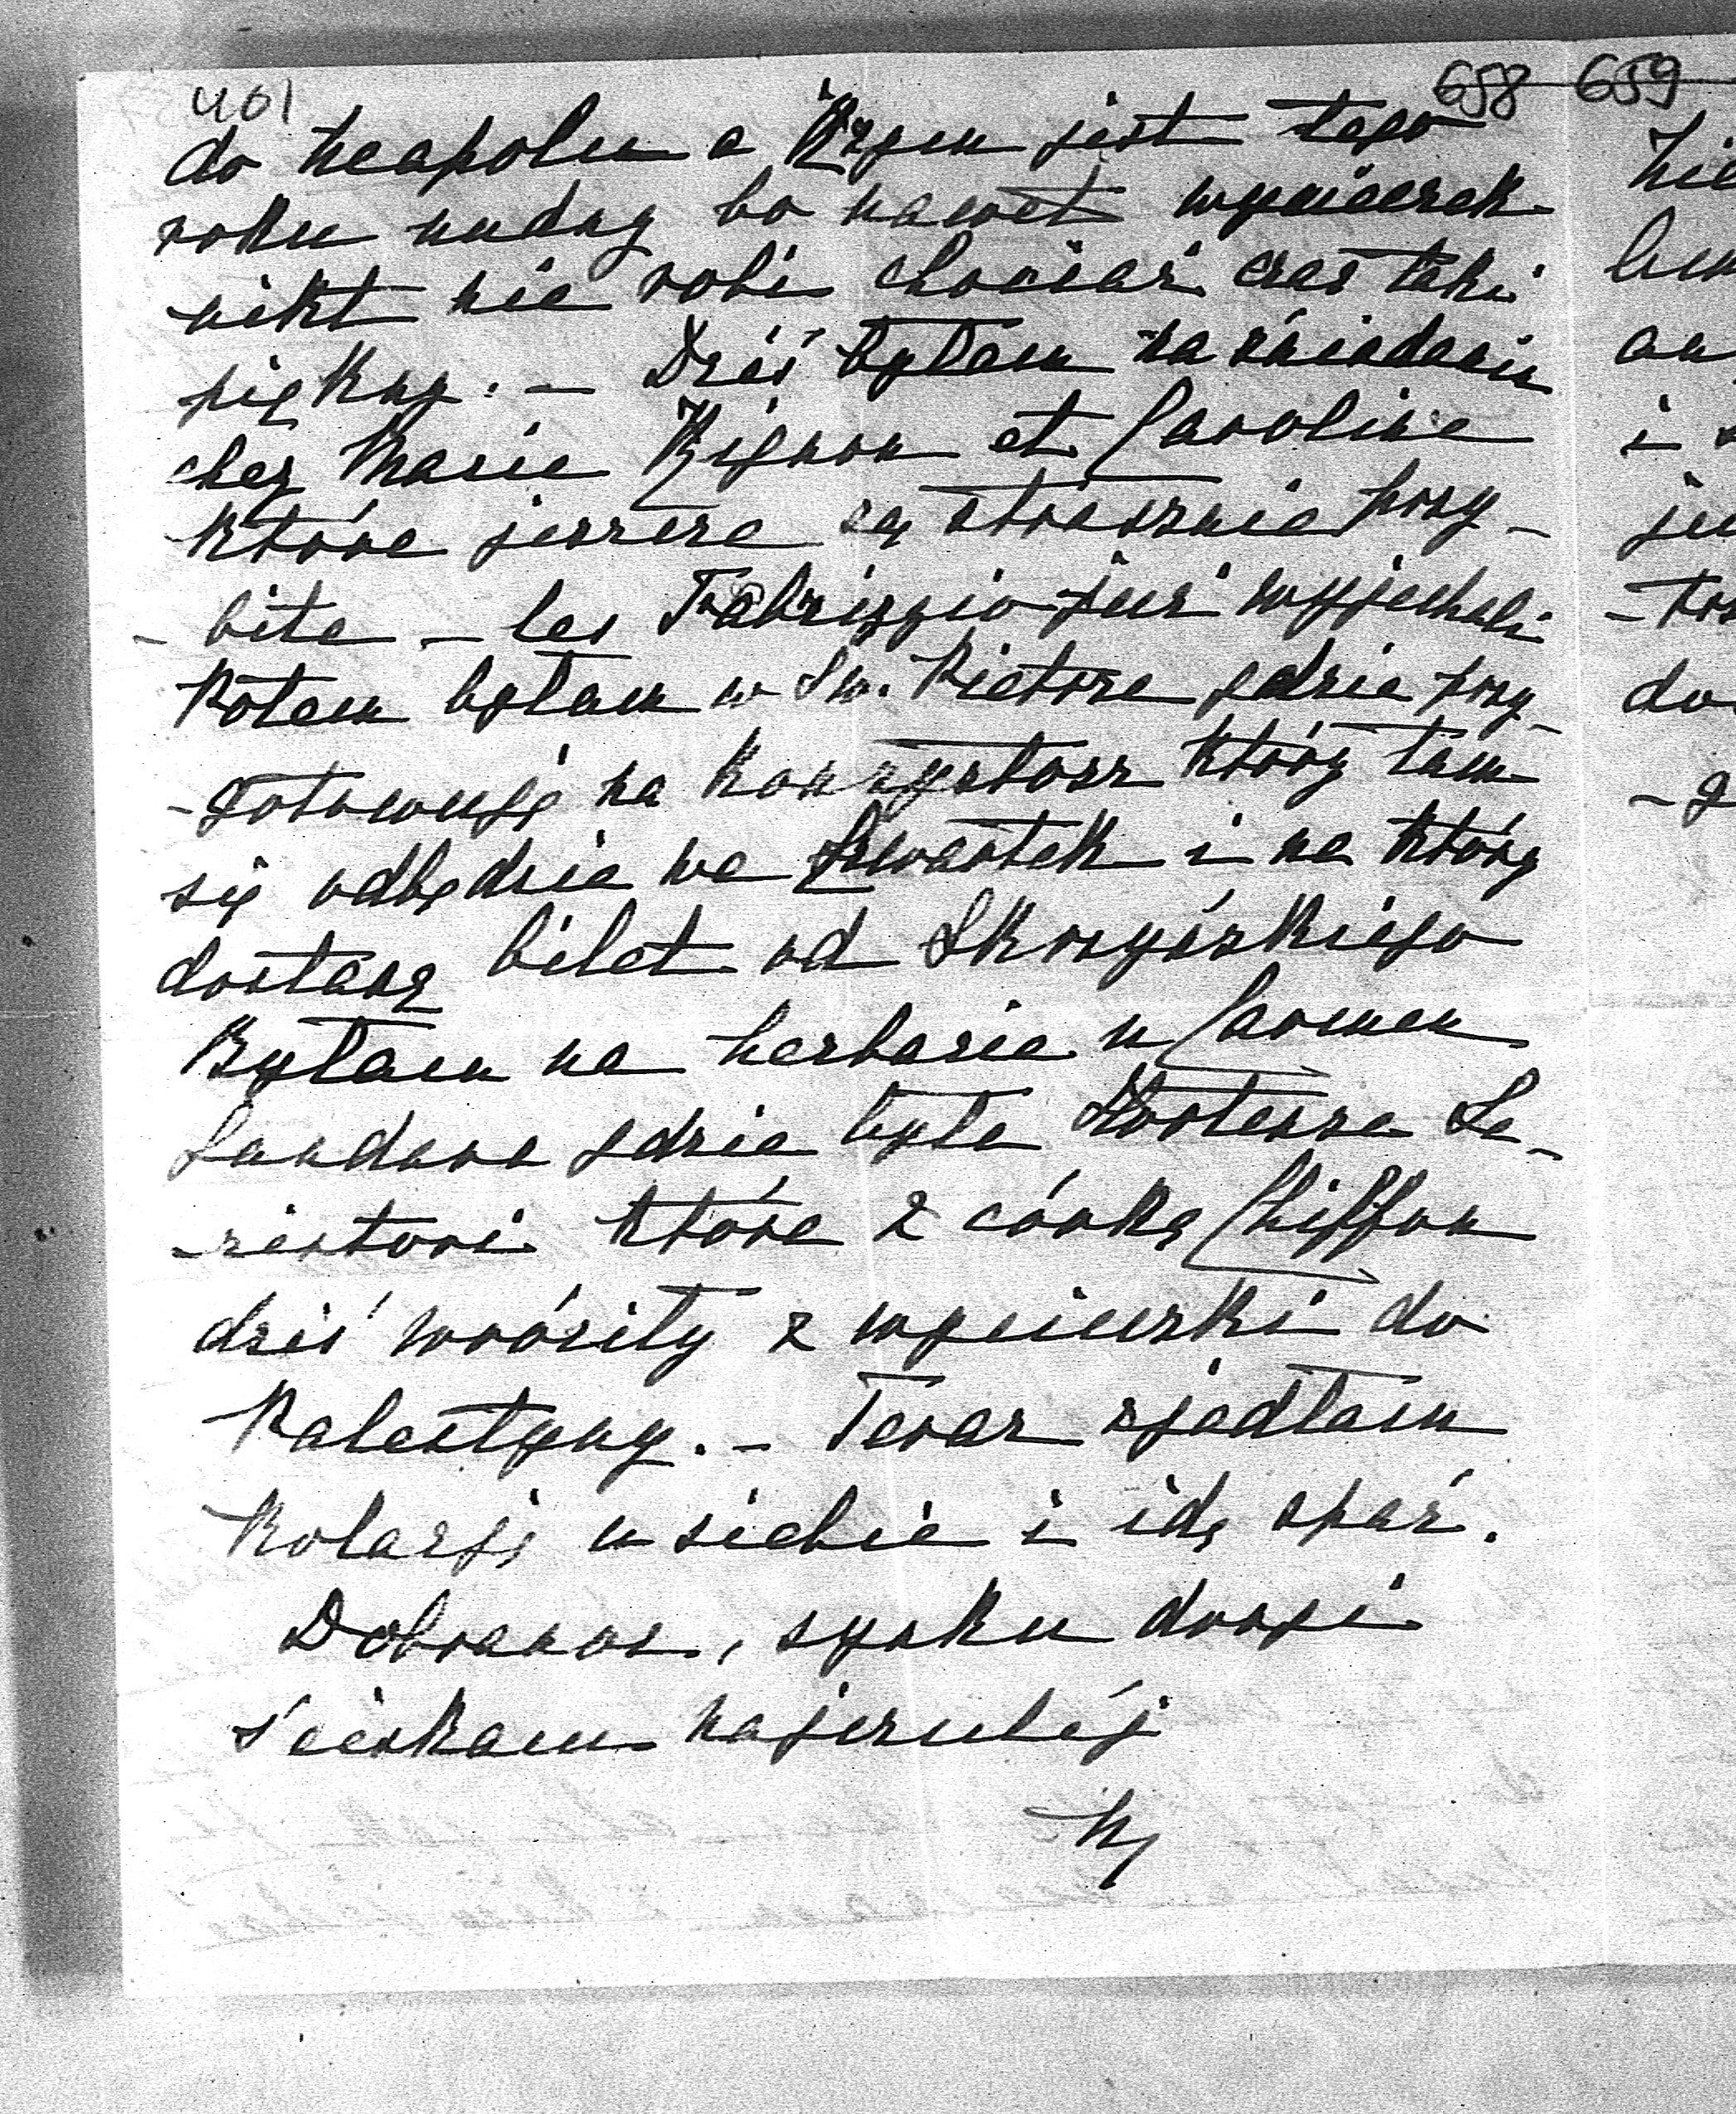 401
658 659
do Neapolu a Rzym jest tego
roku nudny bo nawet wycieczek
nikt nie robi chociaż czas taki
piękny. – Dziś byłam na śniadaniu
chez Marie Rignon et Caroline
które jeszcze są strasznie przy-
- bite – les Fabrizzio już wyjechali
Potem byłam w Św. Pietrze gdzie przy-
- gotowują na Konzystorz który tam
się odbędzie we Czwartek i na który
dostanę bilet od Skrzyńskiego
Byłam na herbacie u Carmen
Landara gdzie była Hortensa Se-
- ristori która z córką Chiffon
dziś wróciły z wycieczki do
Palestyny. – Teraz zjadłam
Kolację u siebie i idę spać.
Dobranoc, synku drogi
ściskam najczulej